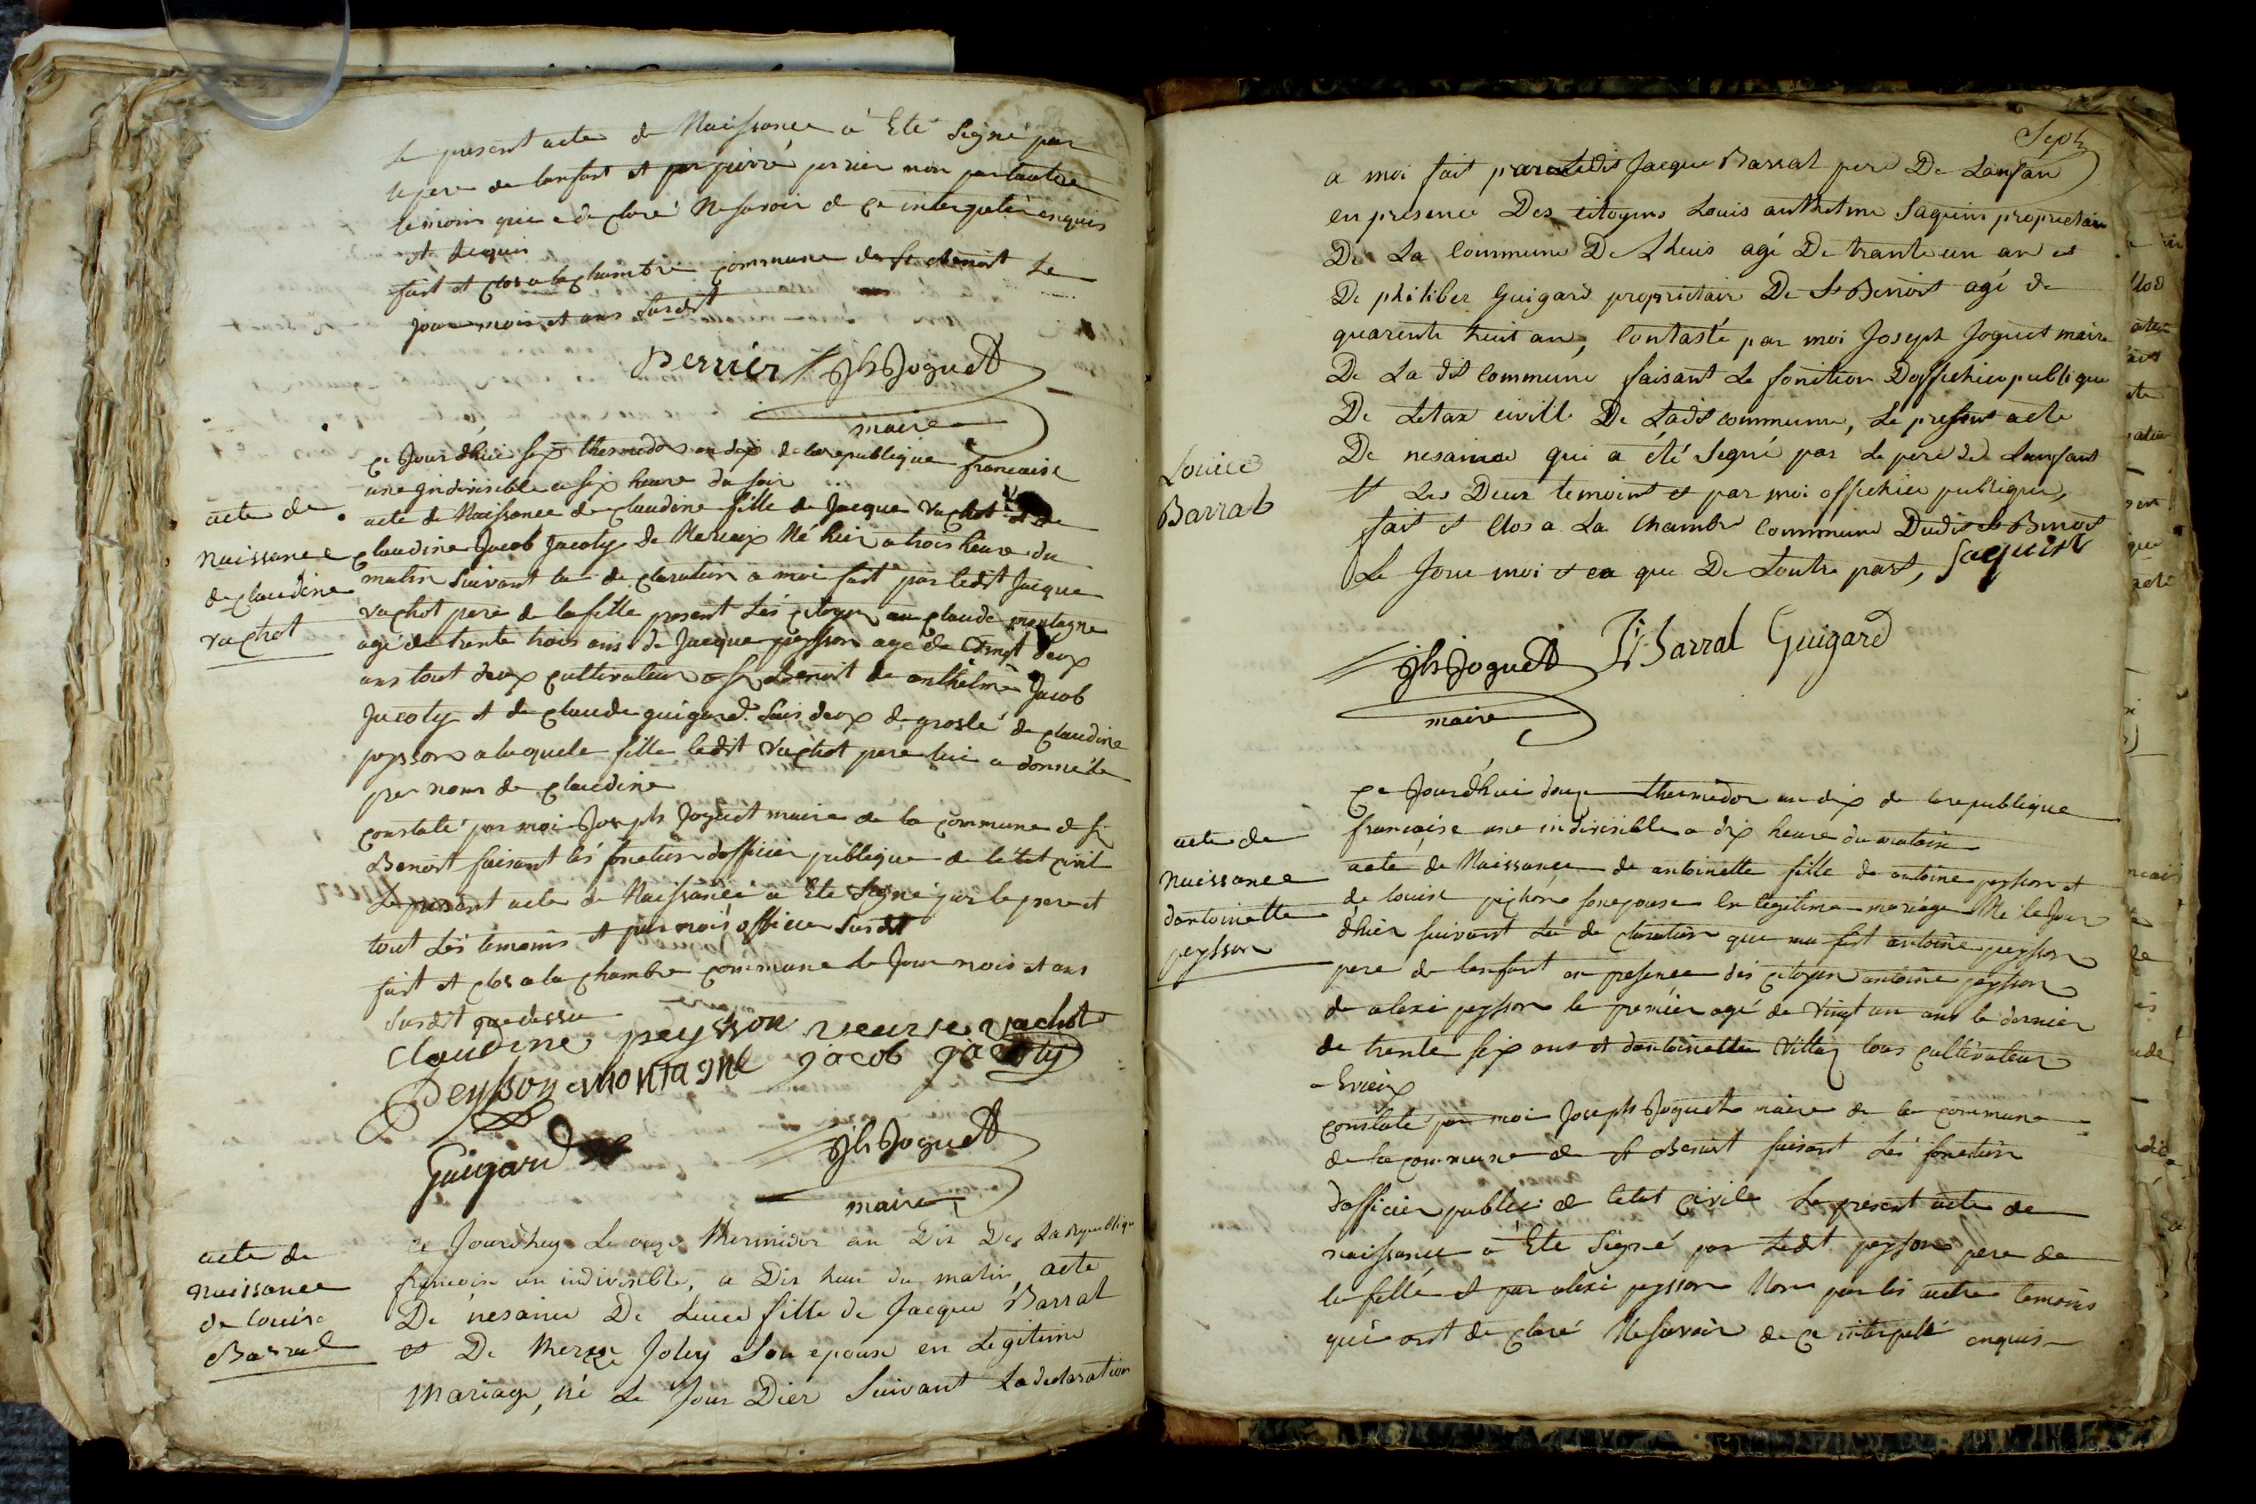 Le present acte de Naissance a Eté Signé par
le pere de lenfant et par pierre perrier non par lautre
temoins qui a declaré Ne savoir de ce interpelé enquis
et Requis
fait et clos a la chambre commune de st benoit Le
Jour mois et ans susdit
Perrier Jh Joguet
maire
acte de
naissance
de claudine
vachot
Ce Jourdhui six thermidor an dix de la republique francaise
une indivisible a six heure du soir
acte de Naissance de claudine fille de Jacque vachot et de
claudine Jacob Jacoty de Né hier a trois heure du
matin suivant la declaration a moi fait par ledit Jacque
vachot pere de la fille present Les citoyen claude montagne
agé de trente trois ans de Jacque peysson agé de vingt deux
ans tout deux cultivateur a st Benoit de anthelme Jacob
Jacoty et de claude guigard deux de groslé de claudine
peysson a laquele fille ledit vachot pere lui a donné le
pre nom de claudine
constaté par moi Joseph Joguet maire de la commune de st
Benoit faisant Les fonction dofficier publique de létat civil
Le present acte de Naissance a Eté Signé par le pere et
tout Les temoins et par moi officier susdit
fait et clos a la chambre commune le Jour mois et ans
susdit que dessu
Claudine peysson veuve vachot
Peysson montagne jacob jacoty
Guigard Jh Joguet
maire
acte de
naissance
de louise
Barral
ce Jourdhuy Le onze thermidor an Dix De La Republique
francoise un indivisible, a Dix heur du matin, acte
De nesance De Luice fille de Jacque Barral
et De Joley Son epouse en Legitime
Mariage, né Le Jour Dier Suivant La declaration
Sept
a moi fait par Ledit Jacque Barral pere De Lanfan
en presence Des citoyens Louis anthelme Saquin proprietair
De La Commune De Lhuis agé De trante un an et
De philiber Guigard proprietair De St Benoit agé de
quarente huit an, Contasté par moi Joseph Joguet maire
De La dit Commune faisant Le fonction Doffichier publique
De Letax civill De Ladit commune, Le present acte
De nesance qui a été Signé par Le pere de Lanfant
et Les Deux temoint et par moi offichier publique,
fait et Clos a La Chambre Commune Dudit St Benoit
Le Jour moi et an que De Loutre part, Saquin
Louice
Barral
Jh Joguet Barral Guigard
maire
acte de
naissance
dantoinette
peysson
Ce Jourdhui douze thermidor an dix de la republique
francaise une indivisible a dix heure du matein
acte de Naissance de antoinette fille de antoine peysson et
de louise son epouse en legitime mariage Né le Jour
dhier suivant La declaration que ma fait antoine peysson
pere de lenfant en presence des citoyen antoine peysson
de alexi peysson le premier agé de vingt un ans le dernier
de trente six ans et dantoinette tous cultivateur
a Evieux
constaté par moi Joseph Joguet maire de la commune
de la commune de st Benoit faisant Les fonction
dofficier public de letat civile Le present acte de
naissance a Eté Signé par Ledit peysson pere de
la fille et par alexi peysson Non par les autre temoins
qui ont declaré Ne savoir de ce interpellé enquis